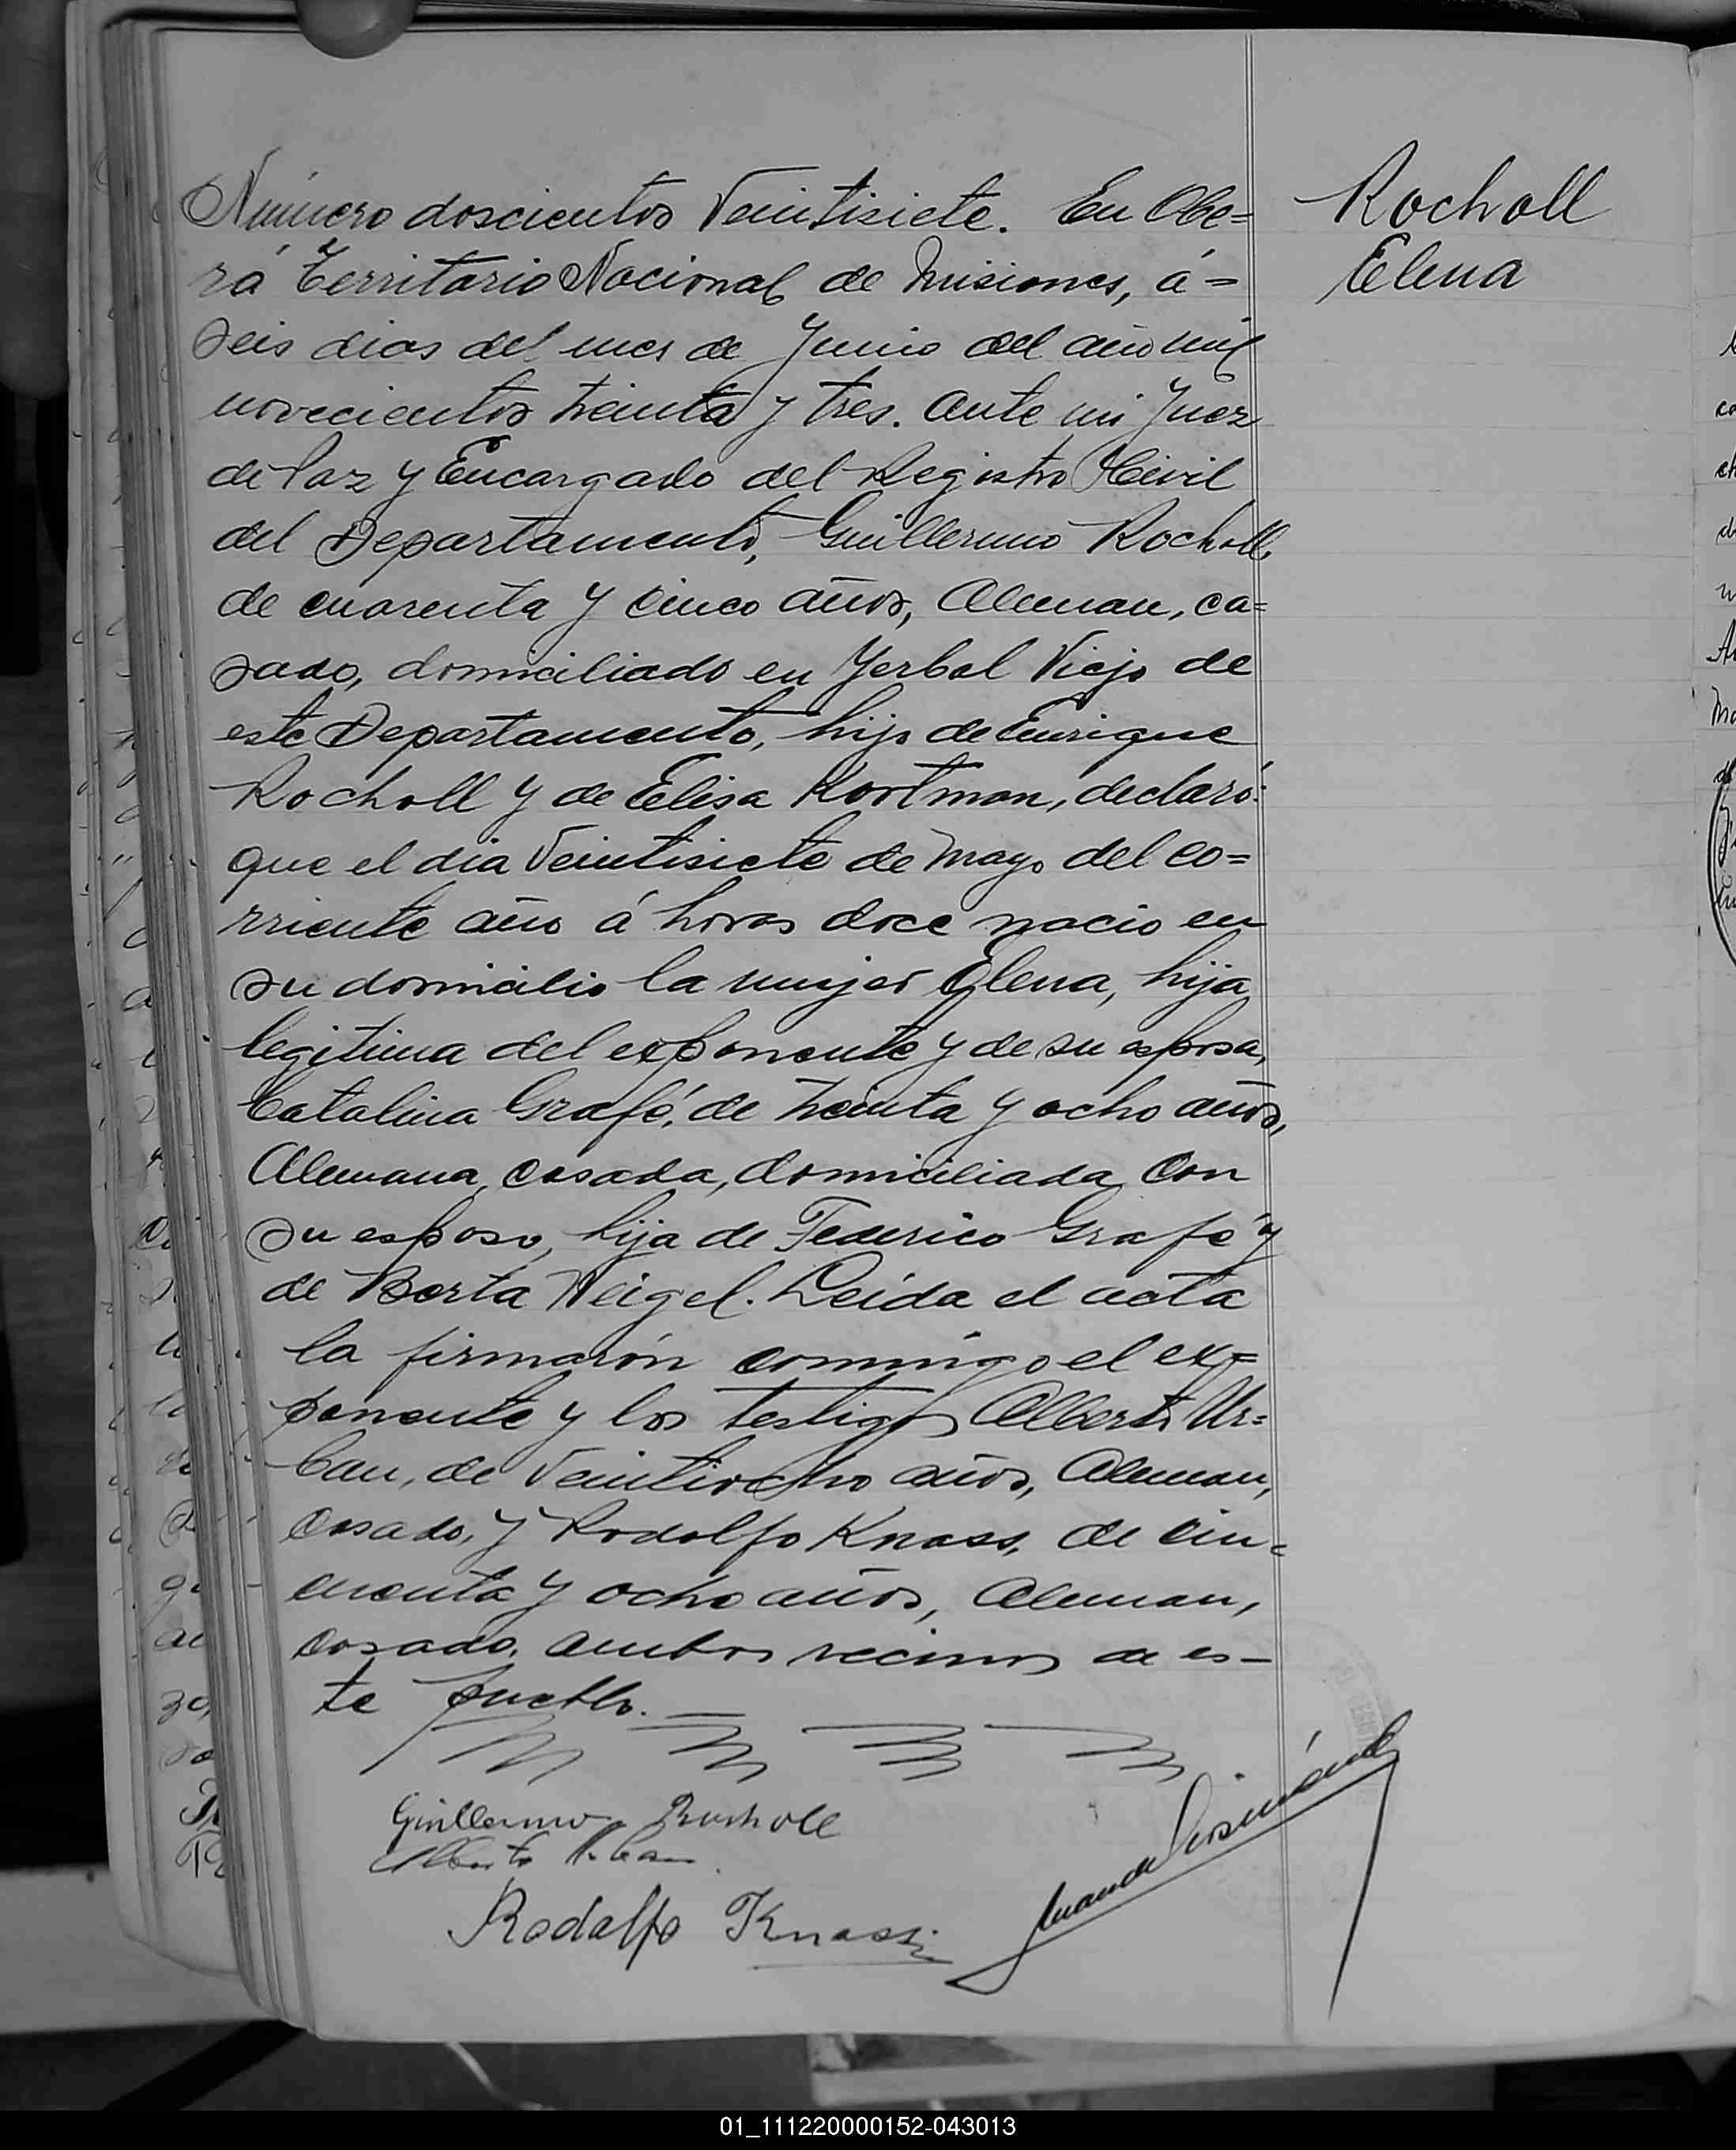 Número doscientos Veintisiete. En Obe=
rá Territorio Nacional de Misiones, á=
seis dias del mes de Junio del año mil
novecientos treinta y tres. Ante mi Juez
de Paz y Encargado del Registro Civil
del Departamento, Guillermo Rocholl,
de cuarenta y cinco años, Aleman, ca=
sado, domiciliado en Yerbal Viejo de
este Departamento, hijo de Enrique
Rocholl y de Elisa Kortman, declaró:
que el dia Veintisiete de Mayo del co=
rriente año á horas doce nacio en
su domicilio la mujer Elena, hija
legitima del exponente y de su esposa,
Catalina Grafé, de treinta y ocho años,
Alemana, casada, domiciliada con
su esposo, hija de Federico Grafé y
de Berta Weigel. Leida el acta
la firmarón conmigo el ex=
ponente y los testigos Alberto Ur=
ban, de Veintiocho años, Aleman,
casado, y Rodolfo Knass, de cin=
cuenta y ocho años, Aleman,
casado, ambos vecinos de es-
te pueblo.
Guillermo Rocholl
Alberto Urban
Rodolfo Knass
Rocholl
Elena
01_111220000152-043013